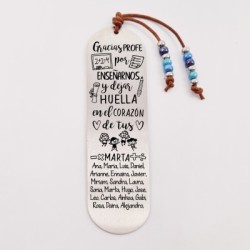 Gracias PROFE
2+2=4
por
ENSEÑARNOS
y dejar
HUELLA
en el CORAZÓN
de tus
-×MARTA+÷
Ana, María, Luis, Daniel,
Arianne, Ennaira, Javier,
Miriam, Sandra, Laura,
Sonia, Marta, Hugo, Jose,
Leo, Carlos, Ainhoa, Gala,
Rosa, Deira, Alejandro